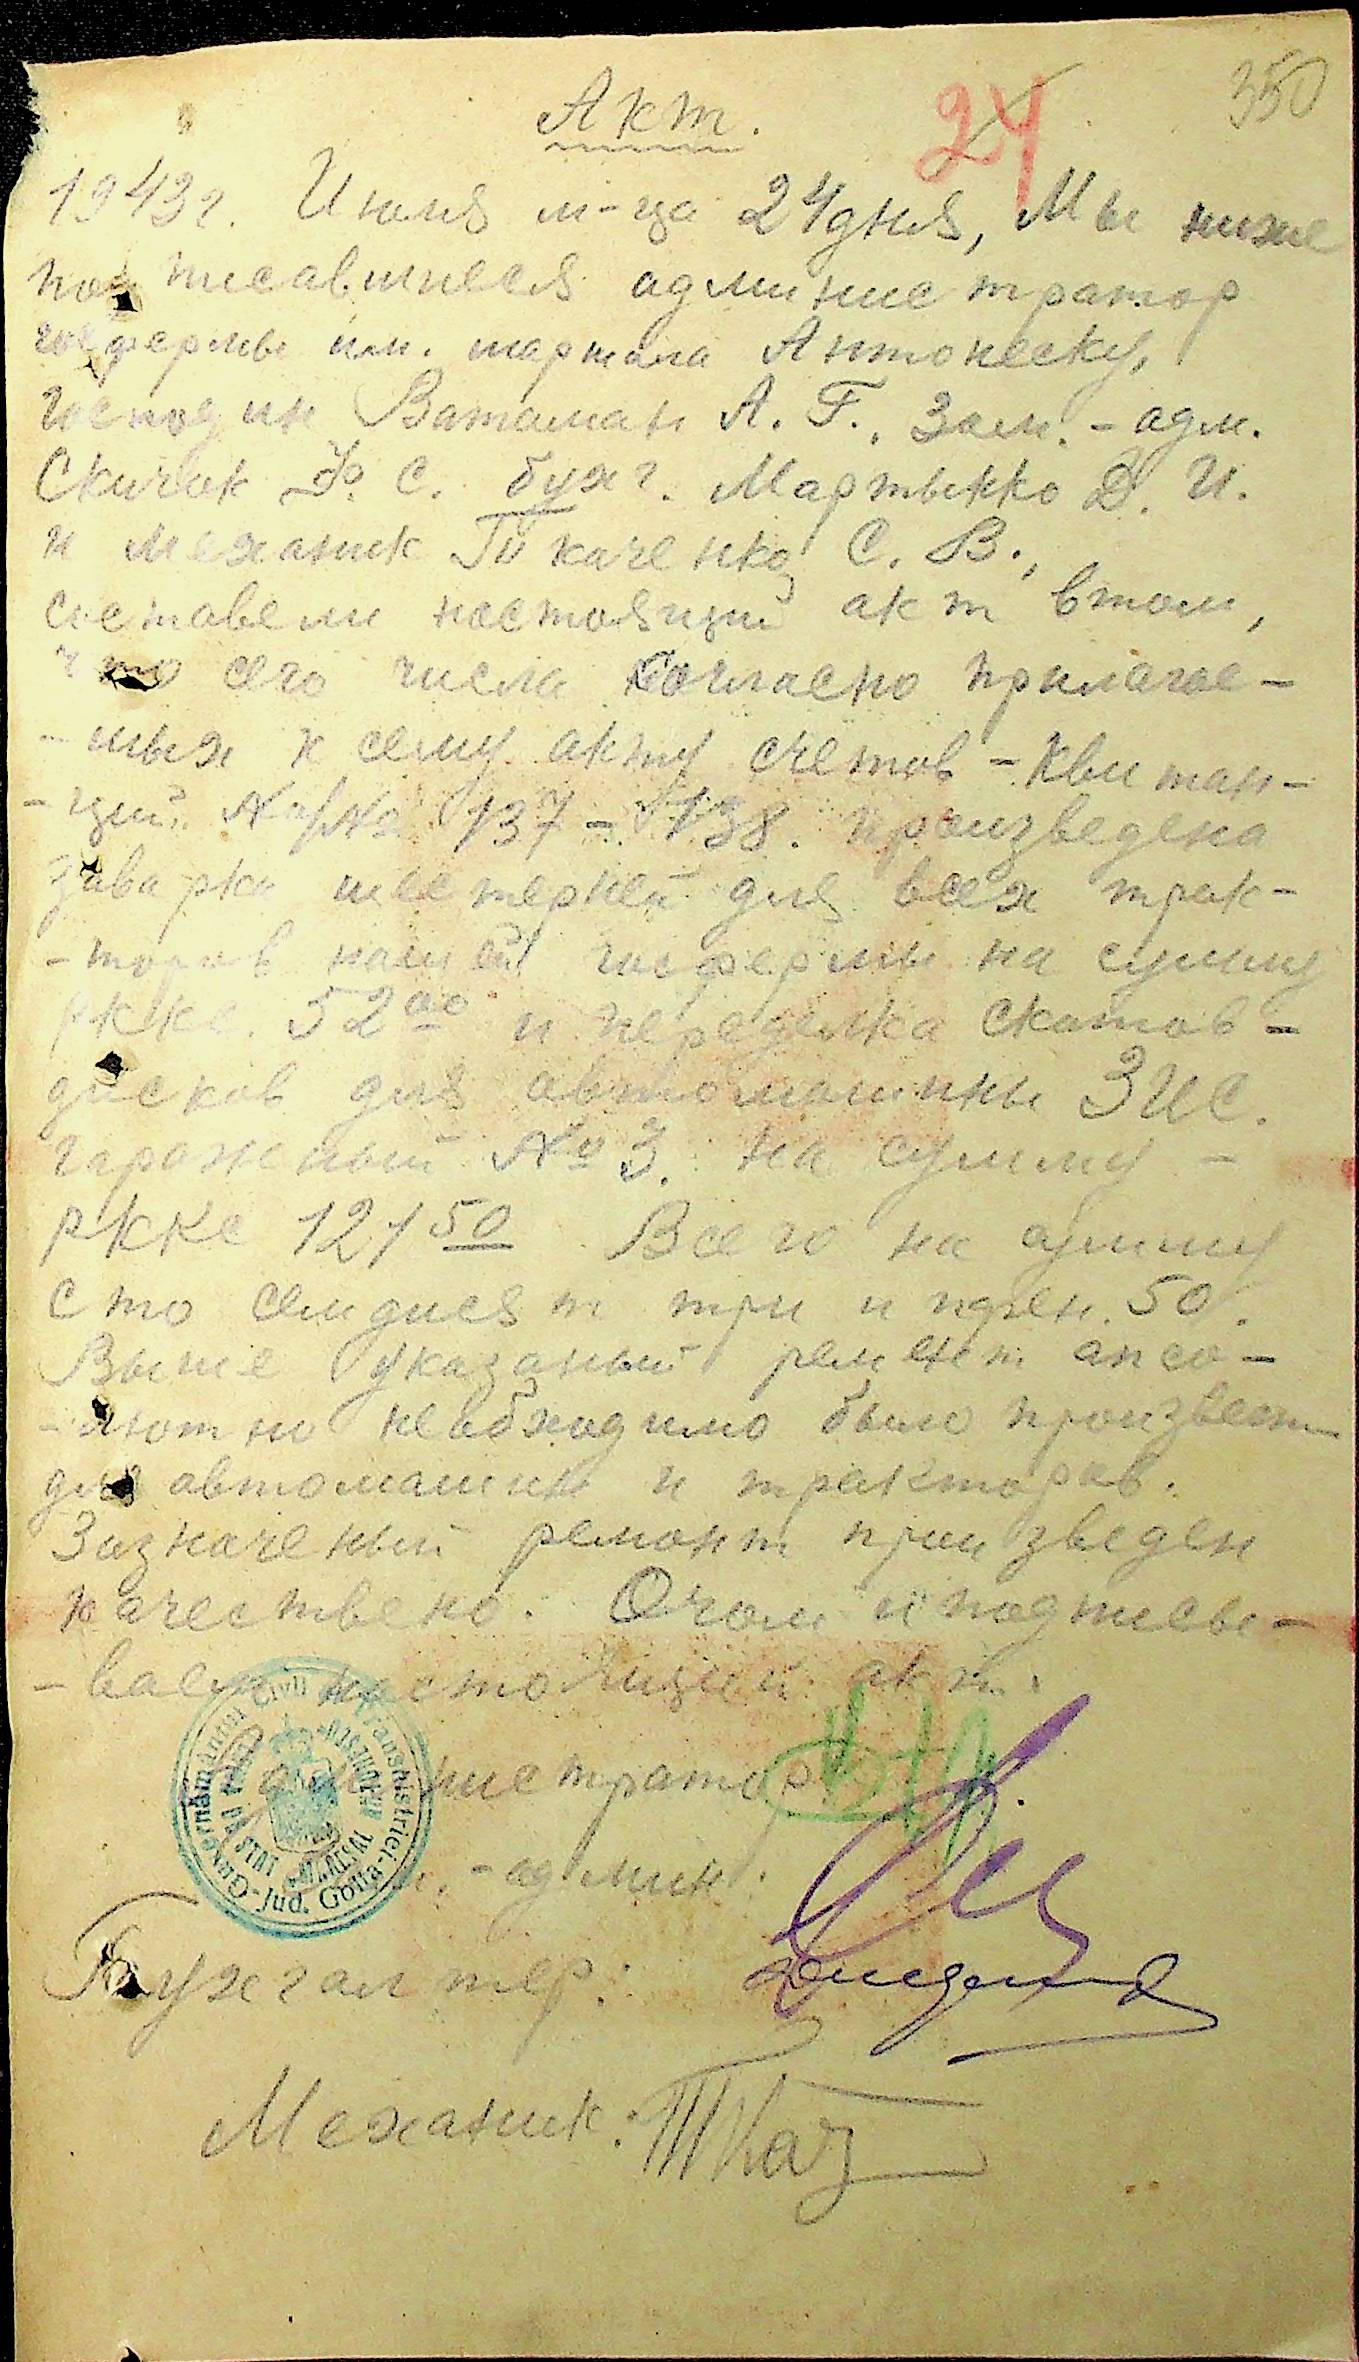 350
24
Акт.
1943г. Июля м-ца 24 дня, Мы ниже
подписавшиеся администратор
госфермы им. маршала Антонеску,
господин Ватаман А. Г., Зам. - адм.
Скичак Ф. С. бухг. Мартынко Д. И.
и механик Ткаченко С. В.,
составели настоящий акт втом,
что сего числа согласно прилагае-
-мых к сему акту счетов - квитан-
-ций №/№ 137 - 138. произведена
заварка шестерней для всех трак-
-торов нашей госфермы на сумму
ркке. 52 00 и переделка скатов -
дисков для автомашины ЗИС.
гаражный № 3. на сумму -
ркке 121 50 Всего на сумму
сто семдисят три и пфен. 50.
Выше указаный ремонт апсо-
-лютно необходимо было произвест
для автомашин и тракторов.
Зазначеный ремонт произведен
качествено. Очом и подписы-
-ваем настоящий акт.
Администратор
-админ:
Бухгалтер:
Механик: Ткач
Guvernământul Civil al Transnistriei - Jud. Golta
FERMA DE STAT "MAREŞAL ANTONESCU"